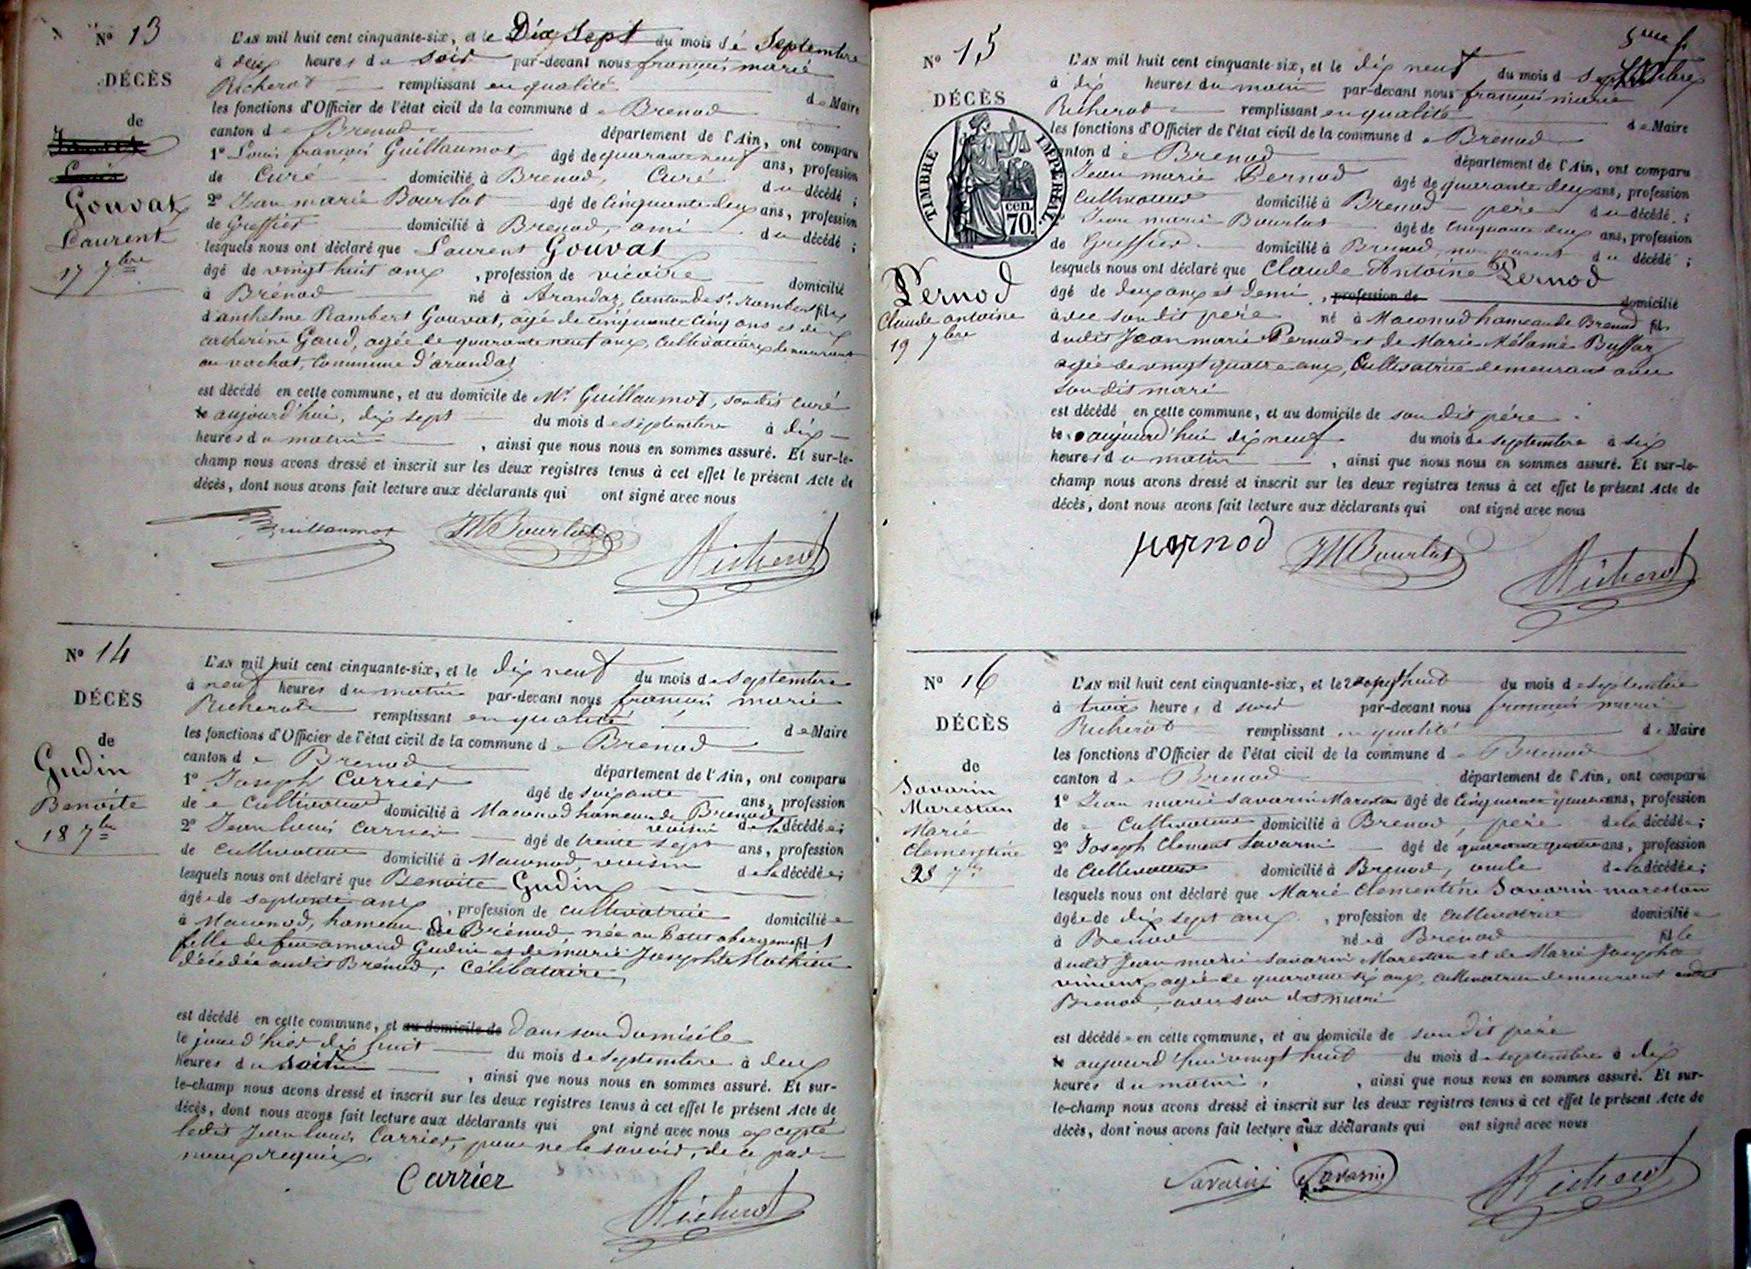 N° 13
DÉCÈS
de
Gouvat
Laurent
17 7bre
L'AN mil huit cent cinquante-six, et le Dix Sept du mois de Septembre
à deux heures du soir par-devant nous françois marie
Richerot remplissant en qualité de Maire
les fonctions d'Officier de l'état civil de la commune de Brenod
canton de Brenod département de l'Ain, ont comparu
1° Louis françois Guillaumot âgé de quarante neuf ans, profession
de Curé domicilié à Brenod, Curé du décédé ;
2° Jean marie Bourlot âgé de Cinquante deux ans, profession
de Greffier domicilié à Brenod, ami du décédé ;
lesquels nous ont déclaré que Laurent Gouvat
âgé de vingt huit ans, profession de vicaire domicilié
à Brénod né à Arandaz, Canton de St. Rambert fils
d'anthelme Rambert Gouvat, agé de cinquante cinq ans et de
catherine Gaud, agée de quarante neuf ans, Cultivateurs demeurant
au vachat, Commune d'arandaz
est décédé en cette commune, et au domicile de Mr Guillaumot, sondit curé
le aujourd'hui, dix sept du mois de septembre à dix
heures du matin, ainsi que nous nous en sommes assuré. Et sur-le-
champ nous avons dressé et inscrit sur les deux registres tenus à cet effet le présent Acte de
décès, dont nous avons fait lecture aux déclarants qui ont signé avec nous
Guillaumot JM Bourlot Richerot
N° 14
DÉCÈS
de
Gudin
Benoite
18 7bre
L'AN mil huit cent cinquante-six, et le dix neuf du mois de septembre
à neuf heures du matin par-devant nous françois marie
Richerot remplissant en qualité de Maire
les fonctions d'Officier de l'état civil de la commune de Brenod
canton de Brenod département de l'Ain, ont comparu
1° Joseph Carrier âgé de soixante ans, profession
de Cultivateur domicilié à Maconod hameau de Brenod voisin de la décédée;
2° Jean louis Carrier âgé de trente sept ans, profession
de Cultivateur domicilié à Maconod, voisin de la décédée;
lesquels nous ont déclaré que Benoite Gudin
âgée de septante ans, profession de cultivatrice domiciliée
à Maconod, hameau de Brénod née au Petit abergement
fille de feu amand Gudin et de marie Josephte Mathieu
décédée audit Brénod, Célibataire,
est décédé en cette commune, et au domicile de dans son domicile
le jour d'hier dix huit du mois de septembre à deux
heures du soir, ainsi que nous nous en sommes assuré. Et sur-
le-champ nous avons dressé et inscrit sur les deux registres tenus à cet effet le présent Acte de
décès, dont nous avons fait lecture aux déclarants qui ont signé avec nous excepté
ledit Jean louis Carrier, pour ne le savoir, de ce par
nous requis.
Carrier Richerot
N° 15
DÉCÈS
TIMBRE IMPÉRIAL
cen. 70.
Pernod
Claude antoine
19 7bre
L'AN mil huit cent cinquante-six, et le dix neuf du mois de septembre
à dix heures du matin par-devant nous françois marie
Richerot remplissant en qualité de Maire
les fonctions d'Officier de l'état civil de la commune de Brenod
canton de Brenod département de l'Ain, ont comparu
Jean marie Pernod âgé de quarante deux ans, profession
Cultivateur domicilié à Brenod père du décédé ;
2° Jean marie Bourlot âgé de cinquante deux ans, profession
de Greffier domicilié à Brenod, non parent du décédé ;
lesquels nous ont déclaré que Claude Antoine Pernod
âgé de deux ans et demi, profession de domicilié
avec son dit père né à Maconod hameau de Brenod fils
dudit Jean marie Pernod et de Marie Mélanie Buffaz
agée de vingt quatre ans, Cultivatrice demeurant avec
son dit mari
est décédé en cette commune, et au domicile de son dit père
le aujourd'hui dix neuf du mois de septembre à six
heures du matin, ainsi que nous nous en sommes assuré. Et sur-le-
champ nous avons dressé et inscrit sur les deux registres tenus à cet effet le présent Acte de
décès, dont nous avons fait lecture aux déclarants qui ont signé avec nous
pernod JM Bourlot Richerot
N° 16
DÉCÈS
de
Savarin
Marestan
Marie
Clementine
28 7bre
L'AN mil huit cent cinquante-six, et le vingt huit du mois de septembre
à trois heures d soir par-devant nous françois marie
Richerot remplissant en qualité de Maire
les fonctions d'Officier de l'état civil de la commune de Brenod
canton de Brenod département de l'Ain, ont comparu
1° Jean marie Savarin Marestan âgé de Cinquante quatre ans, profession
de Cultivateur domicilié à Brenod, père de la décédée;
2° Joseph Clement Savarin âgé de quarante quatre ans, profession
de Cultivateur domicilié à Brenod, oncle de la décédée;
lesquels nous ont déclaré que Marie Clementine Savarin marestan
âgée de dix sept ans, profession de Cultivatrice domiciliée
à Brenod née à Brenod fille
dudit Jean marie Savarin Marestan et de Marie Josephte
vincent agée de quarante six ans, cultivatrice demeurant audit
Brenod, avec son dit mari
est décédée en cette commune, et au domicile de son dit père
le aujourd'hui vingt huit du mois de septembre à dix
heures du matin, ainsi que nous nous en sommes assuré. Et sur-
le-champ nous avons dressé et inscrit sur les deux registres tenus à cet effet le présent Acte de
décès, dont nous avons fait lecture aux déclarants qui ont signé avec nous
Savarin Savarin Richerot